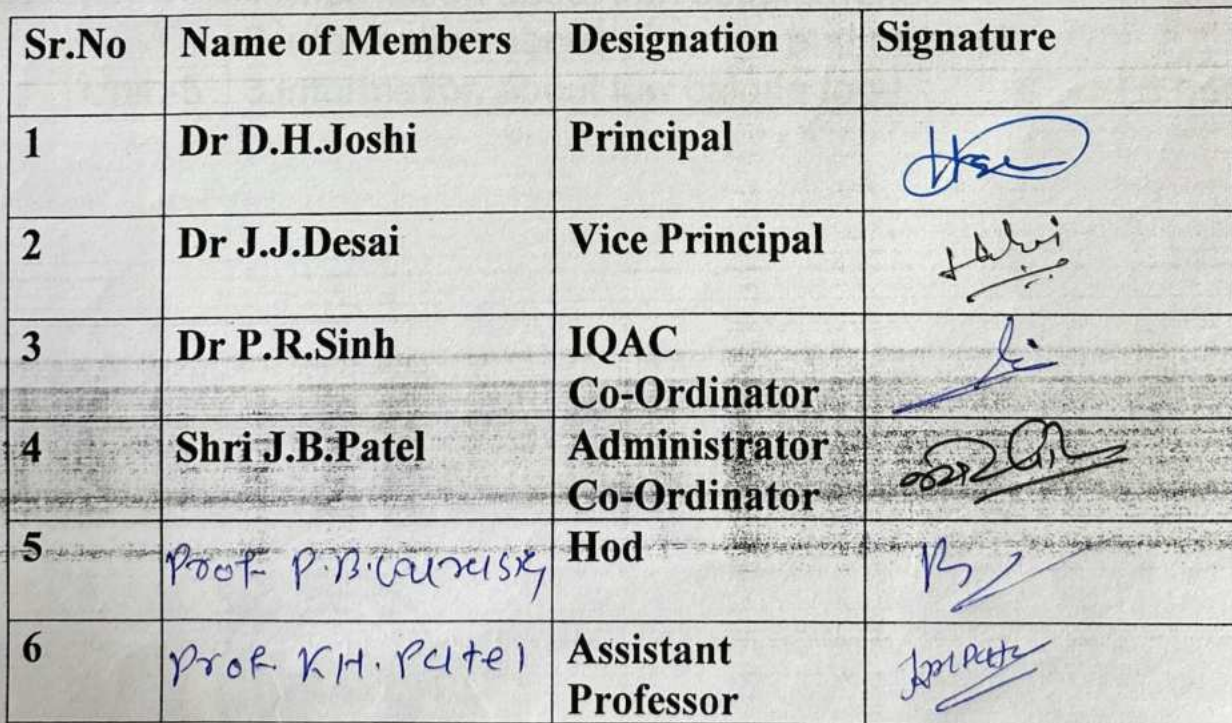 Sr.No Name of Members Designation Signature
1 Dr D.H.Joshi Principal
2 Dr J.J.Desai Vice Principal
3 Dr P.R.Sinh IQAC
Co-Ordinator
4 Shri J.B.Patel Administrator
Co-Ordinator
5 Prof P.B. Hod
6 Prof K.H. Patel Assistant
Professor